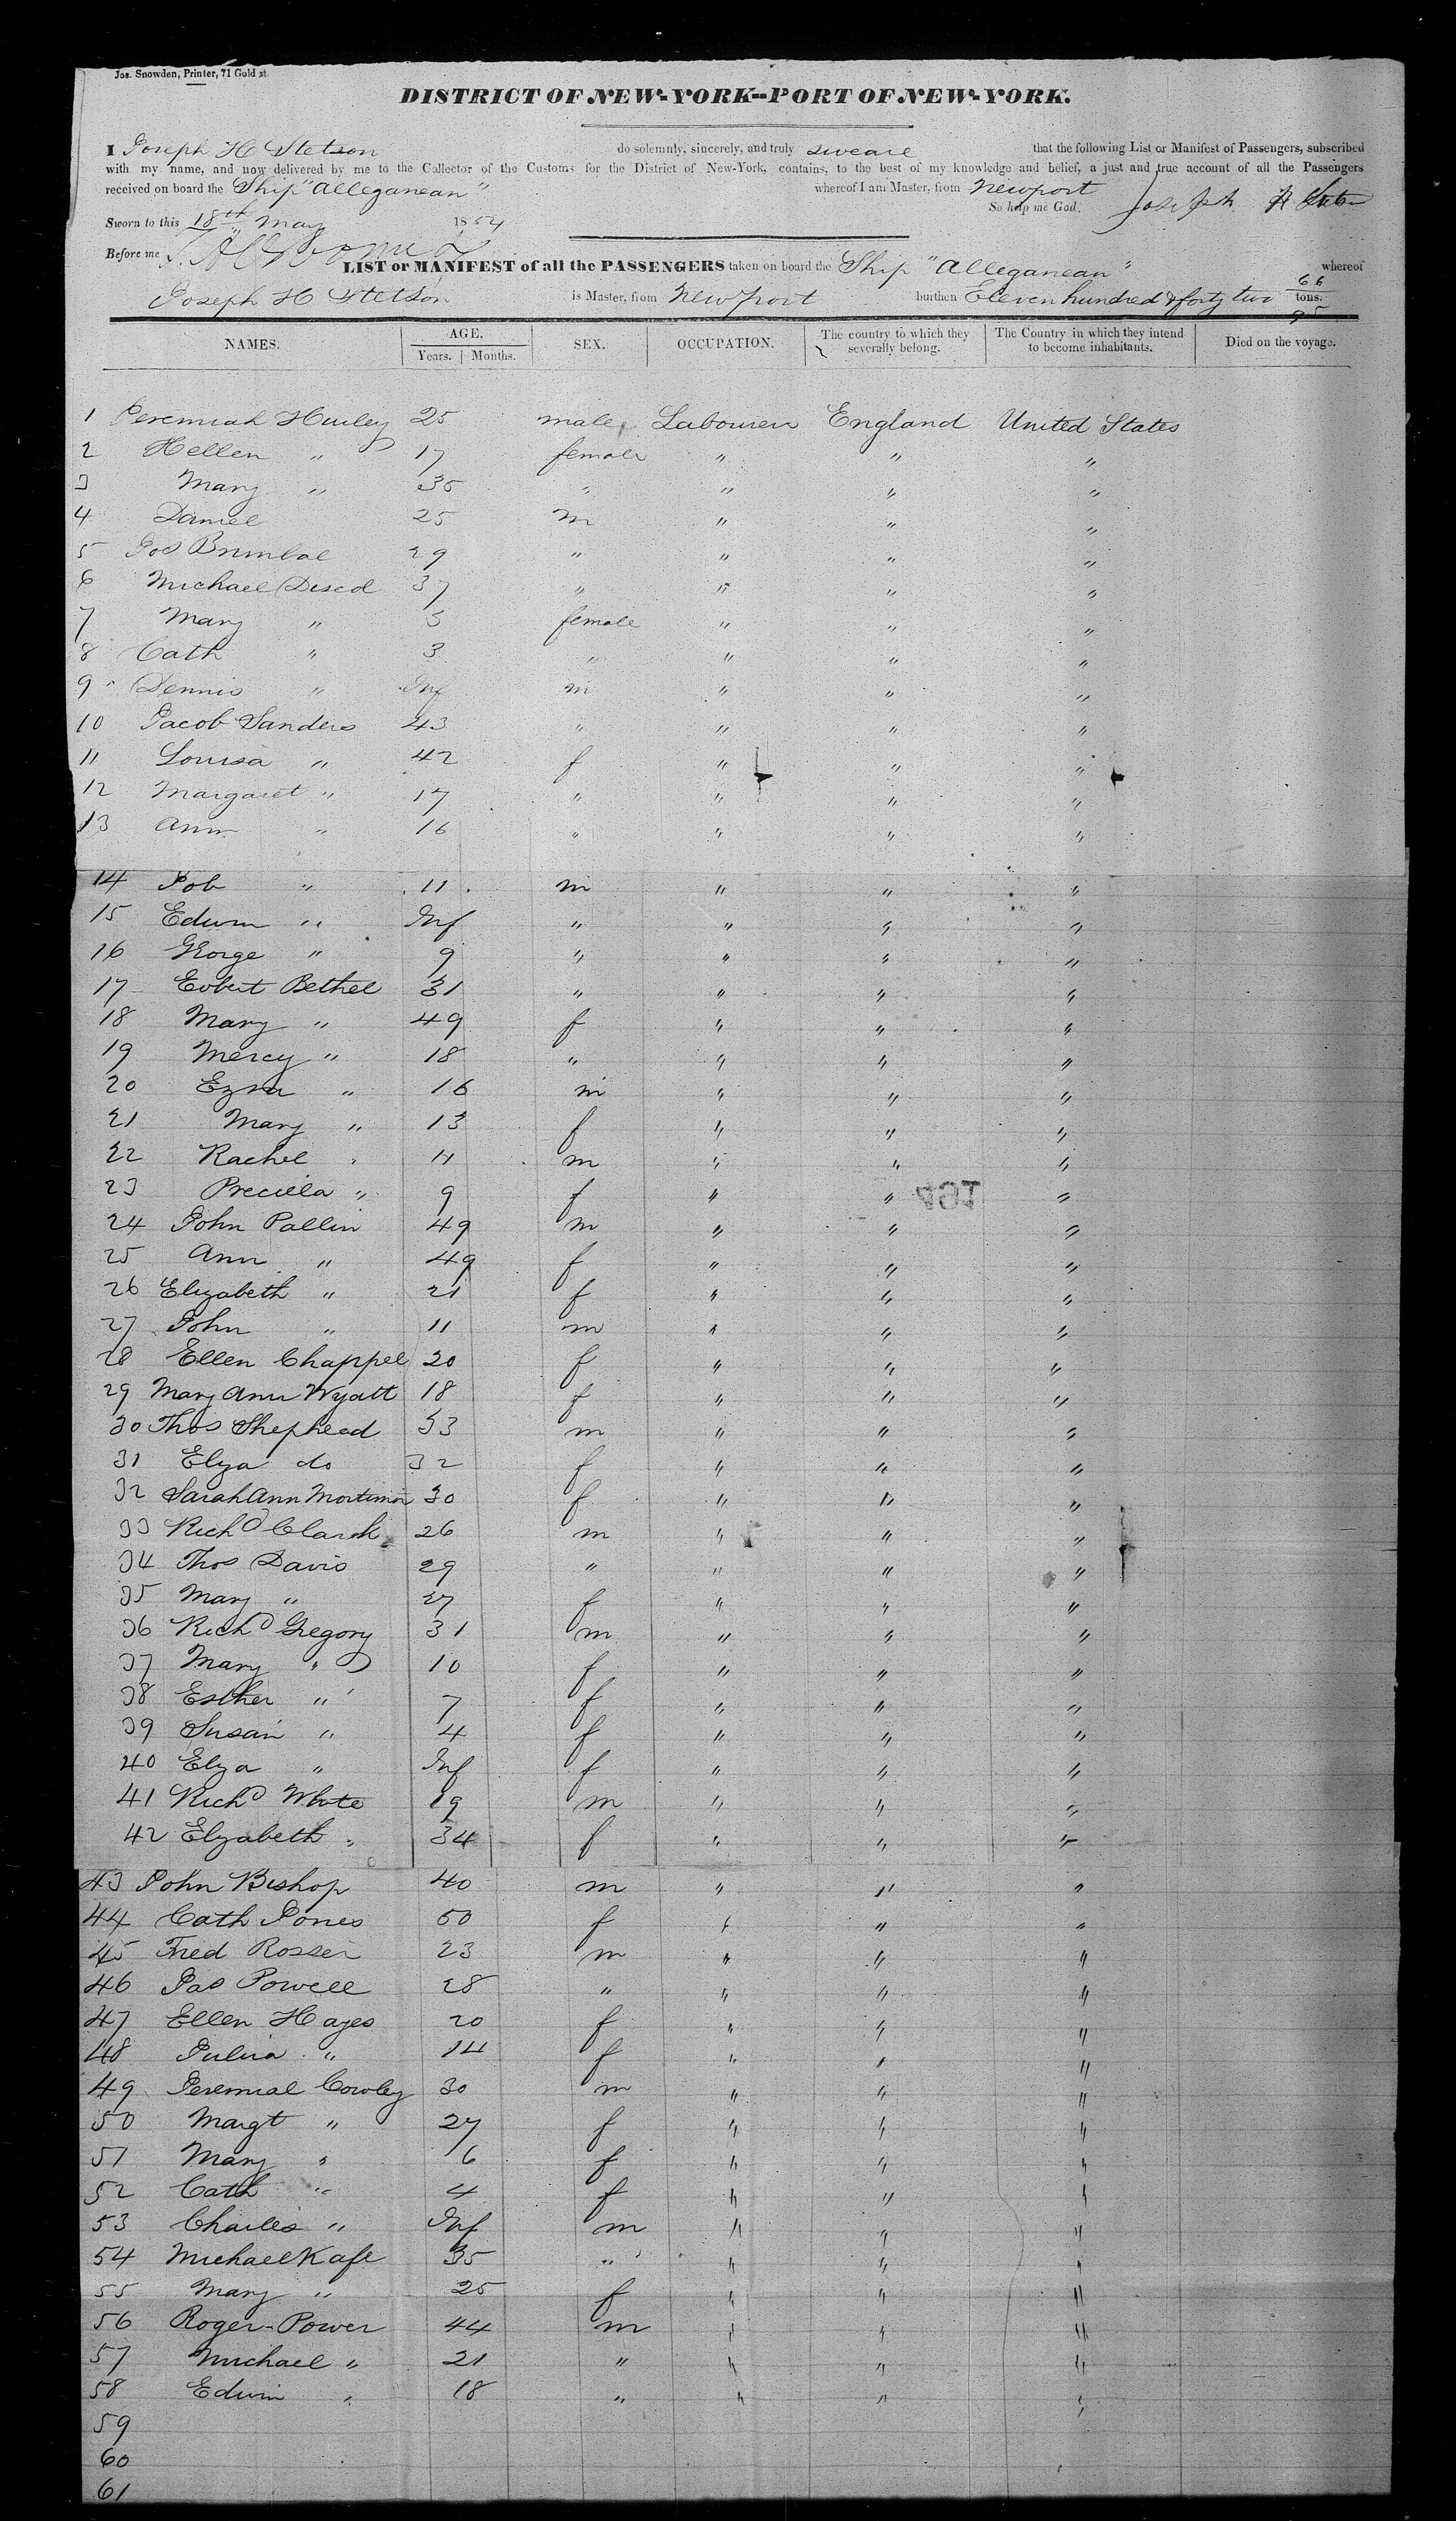 Jos. Snowden, Printer, 71 Gold st.
DISTRICT OF NEW-YORK--PORT OF NEW-YORK.
I Joseph H Stetson do solemnly, sincerely, and truly sweare that the following List or Manifest of Passengers, subscribed
with my name, and now delivered by me to the Collector of the Customs for the District of New-York, contains, to the best of my knowledge and belief, a just and true account of all the Passengers
received on board the Ship "Alleganean" whereof I am Master, from Newport
So help me God. Joseph H Stetson
Sworn to this 18th May 1854
Before me
LIST or MANIFEST of all the PASSENGERS taken on board the Ship "Alleganean" whereof
Joseph H Stetson is Master, from Newport burthen Eleven hundred & forty two 66/95 tons.
NAMES. AGE. Years. Months. SEX. OCCUPATION. The country to which they severally belong. The Country in which they intend to become inhabitants. Died on the voyage.
1 Jeremiah Hurley 25 male Labourer England United States
2 Hellen " 17 female " " "
3 Mary " 35 " " " "
4 Daniel 25 m " " "
5 Jos 29 " " " "
6 Michael 37 " " " "
7 Mary " 5 female " " "
8 Cath " 3 " " " "
9 Dennis " Inf m " " "
10 Jacob Sanders 43 " " " "
11 Louisa " 42 f " " "
12 Margaret " 17 " " " "
13 Ann " 16 " " " "
14 Job " 11 m " " "
15 Edwin " Inf " " " "
16 George " 9 " " " "
17 Bethel 31 " " " "
18 Mary " 49 f " " "
19 Mercy " 18 " " " "
20 Ezra " 16 m " " "
21 Mary " 13 f " " "
22 Rachel " 11 m " " "
23 Precilla " 9 f " " "
491
24 John Pallin 49 m " " "
25 Ann " 49 f " " "
26 Elizabeth " 21 f " " "
27 John " 11 m " " "
28 Ellen Chappel 20 f " " "
29 Mary Ann Wyatt 18 f " " "
30 Thos Shepherd 33 m " " "
31 Elza do 32 f " " "
32 Sarah Ann Mortimer 30 f " " "
33 Richd Clark 26 m " " "
34 Thos Davis 29 " " " "
35 Mary " 27 f " " "
36 Richd Gregory 31 m " " "
37 Mary " 10 f " " "
38 Esther " 7 f " " "
39 Susan " 4 f " " "
40 Elza " Inf f " " "
41 Richd White 19 m " " "
42 Elzabeth " 34 f " " "
43 John Bishop 40 m " " "
44 Cath Jones 50 f " " "
45 Fred Rosser 23 m " " "
46 Jas Powell 28 " " " "
47 Ellen Hayes 20 f " " "
48 Julia " 14 f " " "
49 Jeremial Cowley 30 m " " "
50 Margt " 27 f " " "
51 Mary " 6 f " " "
52 Cath " 4 f " " "
53 Charles " Inf m " " "
54 Michael Kafe 35 " " " "
55 Mary " 25 f " " "
56 Roger Power 44 m " " "
57 Michael " 21 " " " "
58 Edwin " 18 " " " "
59
60
61